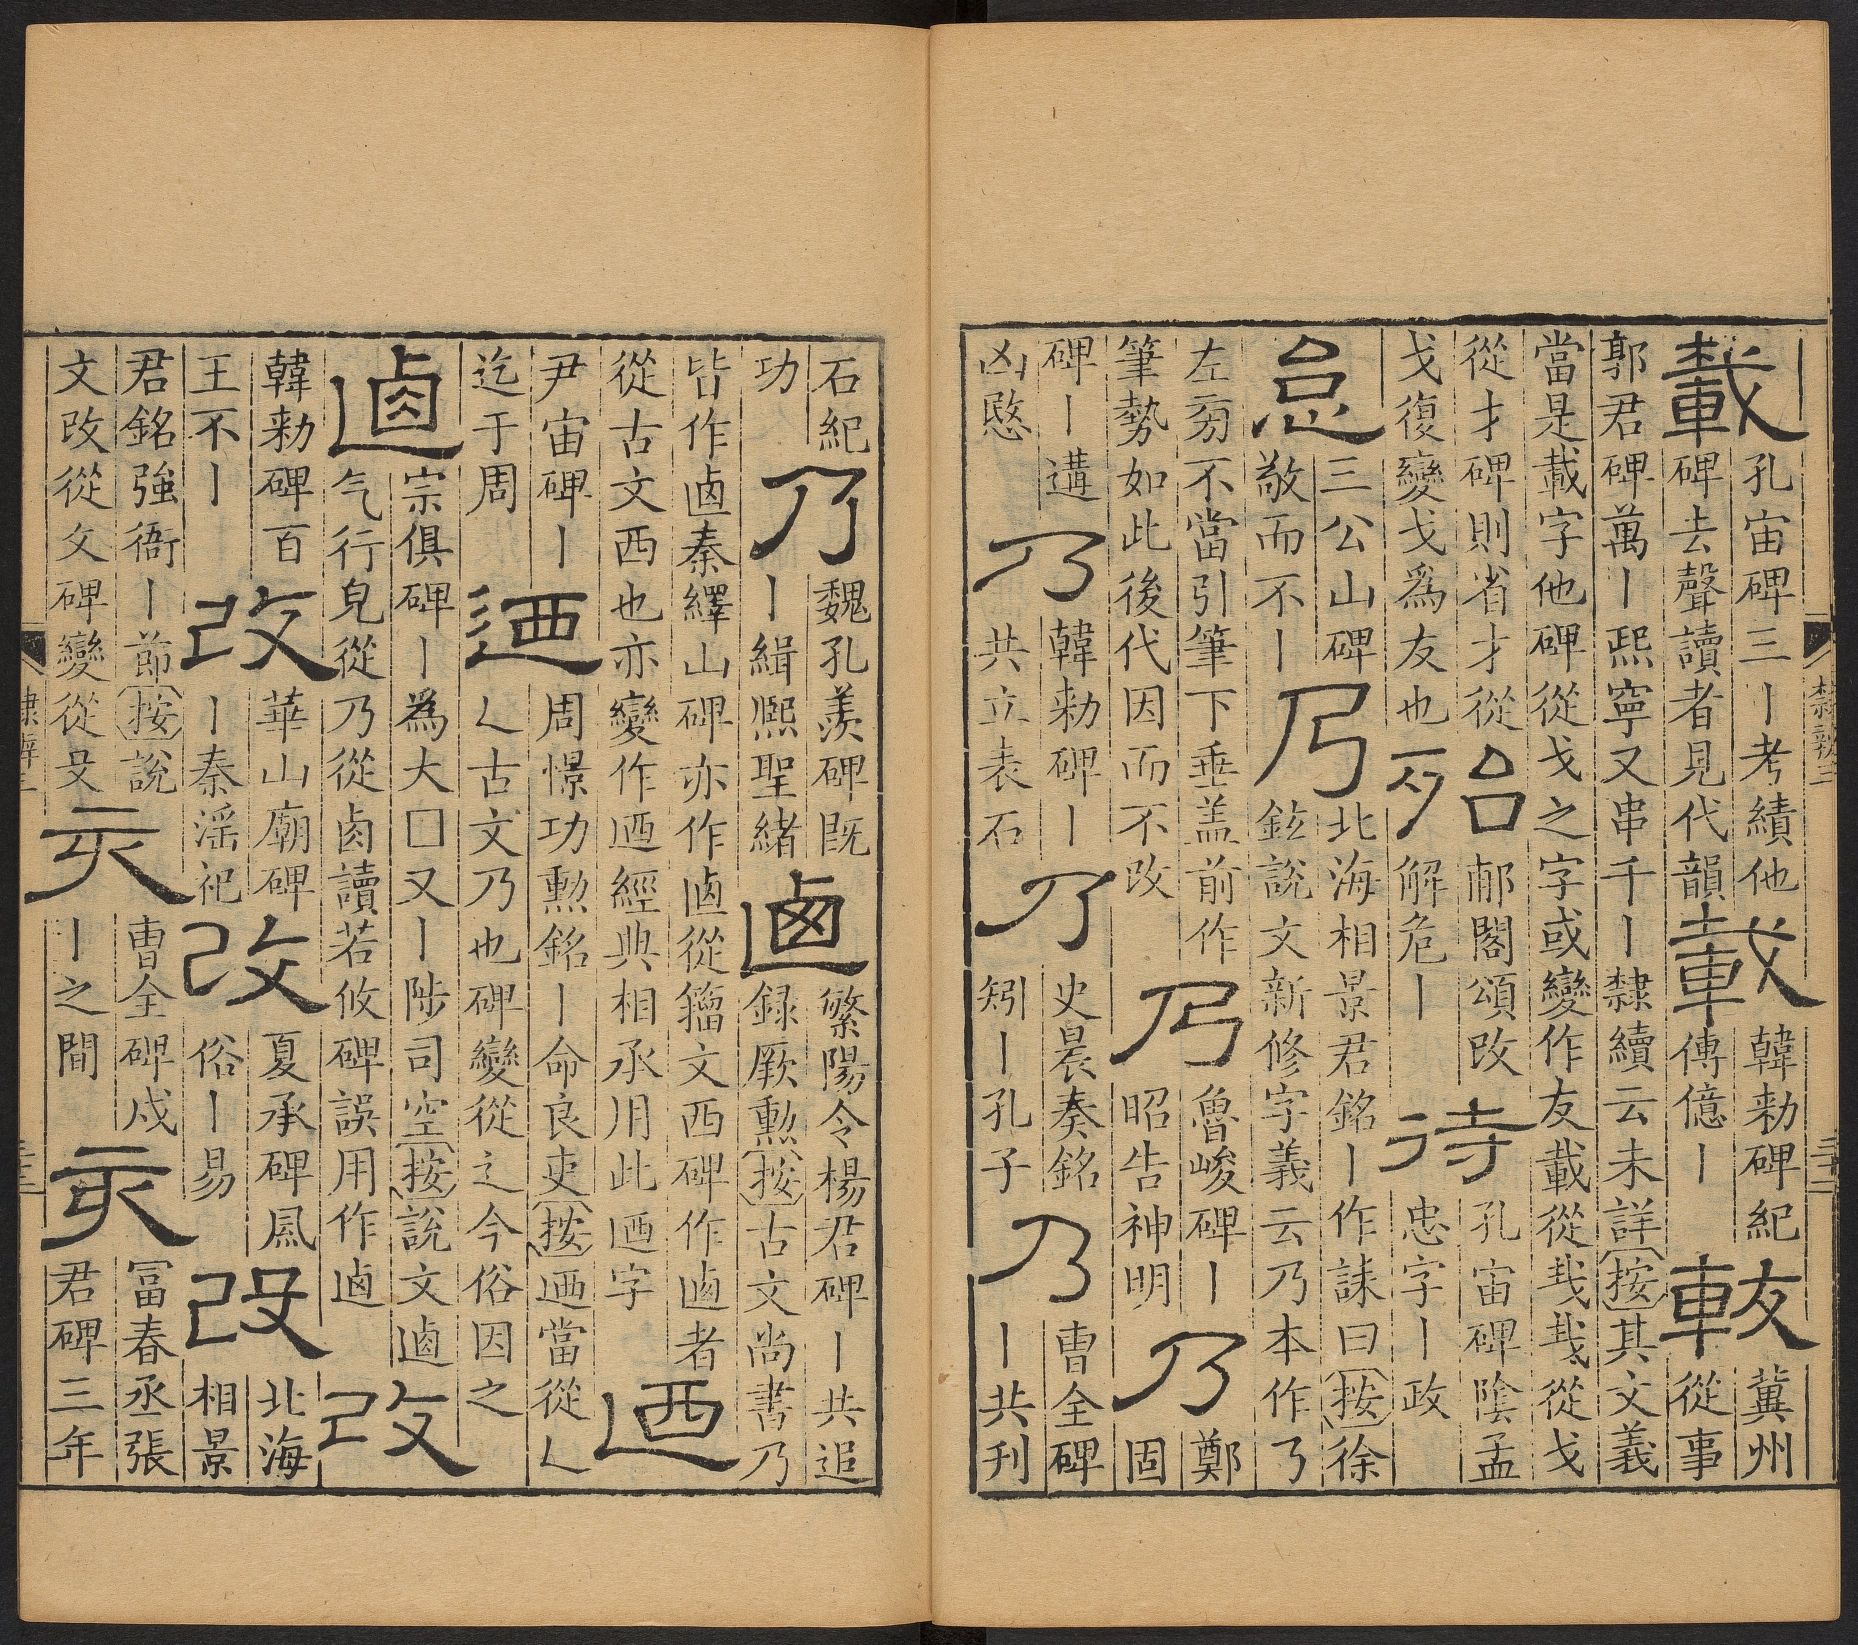 載
孔宙碑三丨考績他
碑去聲讀者見代韻
載
韓勑碑紀
傳億丨
冀州
從事
郭君碑萬丨熙寧又串千丨隸續云未詳按其文義
當是載字他碑從戈之字或變作友載從𢦏𢦏從戈
從才碑則省才從
戈復變戈爲友也
殆
郙閣頌改
解危丨
待
孔宙碑陰孟
忠字丨政
怠
三公山碑
敬而不丨
乃
北海相景君銘丨作誄曰按徐
鉉說文新修字義云乃本作𠄎
左㫄不當引筆下垂盖前作
筆勢如此後代因而不改
乃
魯峻碑丨
昭告神明
乃
鄭
固
碑丨遘
凶愍
乃
韓勑碑丨
共立表石
乃
史晨奏銘
矧丨孔子
乃
曹全碑
丨共刋
隸辨三
三十二
石紀
功
乃
魏孔羨碑既
丨緝熙聖緒
逌
繁陽令楊君碑丨共追
録厥勲按古文尚書乃
皆作逌秦繹山碑亦作逌從籒文西碑作逌者
從古文西也亦變作迺經典相承用此迺字
迺
尹宙碑丨
迄于周
迺
周憬功勲銘丨命良吏按迺當從乚
乚古文乃也碑變從辶今俗因之
逌
宗俱碑丨爲大囗又丨陟司空按說文逌
气行皃從乃從鹵讀若攸碑誤用作逌
改
韓勑碑百
王不丨
改
華山廟碑
丨秦淫祀
改
夏承碑風
俗丨易
改
北海
相景
君銘強衙丨節按說
文改從攵碑變從殳
亥
曹全碑戍
丨之間
亥
富春丞張
君碑三年